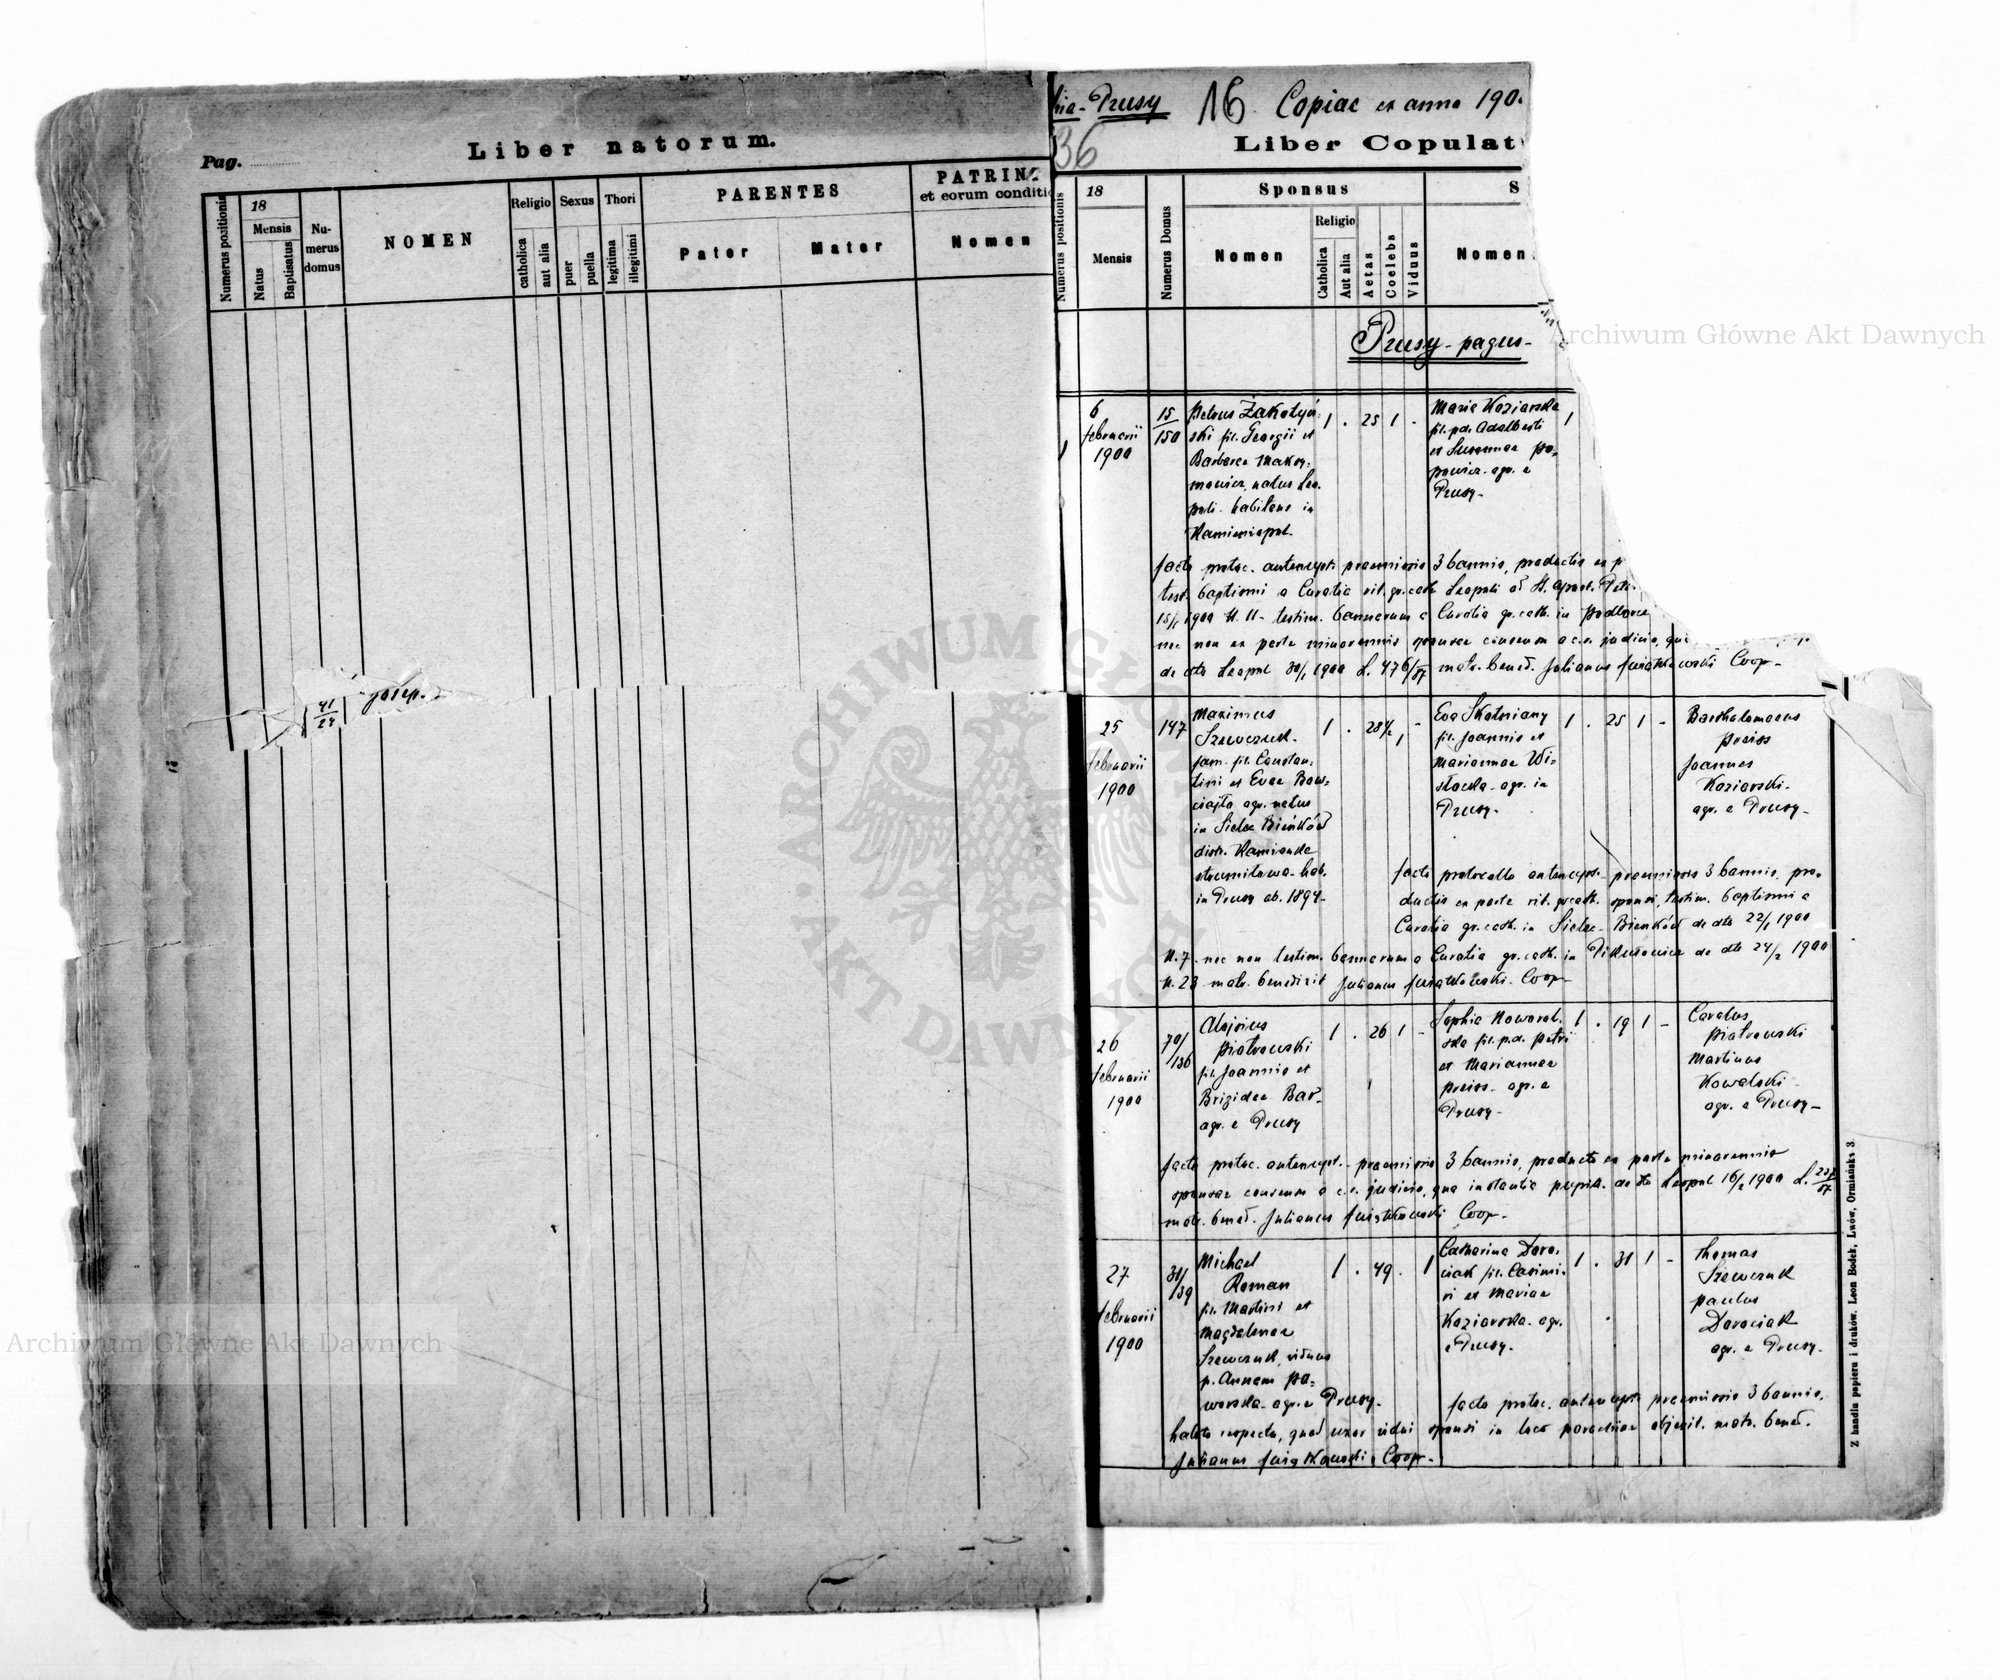 Pag.
Liber natorum.
Numerus positionis
18
Mensis
Natus
Baptisatus
Nu-
merus
domus
NOMEN
Religio
catholica
aut alia
Sexus
puer
puella
Thori
legitima
illegitimi
PARENTES
Pater
Mater
PATRINI
et eorum conditio
Nomen
41/24 Josep.
Prusy 16 Copiae ex anno 190
36
Liber Copulat
Numerus positionis
18
Mensis
Numerus Domus
Sponsus
Nomen
Religio
Catholica
Aut alia
Aetas
Coelebs
Viduus
S
Nomen
Prusy - pagus -
1
6
februarii
1900
15/150
Petrus Żakotyń-
ski fil. Georgii et
Barbarae
natus Leo-
poli - habitans in
Kamieniopol.
1 . 25 1 -
Maria Koziarska
fil. p.d. Adalberti
et Susannae Po-
powicz - agr. e
Prusy -
1
facto protoc. antenupt. praemissis 3 bannis, productis ex p
test. baptismi a Curatia rit. gr. cath. Leopoli ad St. apost. Petr.
15/1 1900 N. 11 - testim. bannorum a Curatia gr. cath. in Podborce
nec non ex parte minorennis sponsae consensu a c.r. judicio, qu
de dto Leopol 30/1 1900 L. matr. bened. Julianus Kwiatkowski Coop -
25
februarii
1900
147
Maximus
Szewczuk -
fam. fil. Constan-
tini et Evae
agr. natus
in Sielec Bieńków
distr. Kamionka
strumiłowa - hab.
in Prusy ab. 1894 -
1 . 28½ 1 -
Eva Skotniany
fil. Joannis et
Mariannae Wi-
słocka - agr. in
Prusy -
1 . 25 1 -
Bartholomaeus
Preiss
Joannes
Koziarski -
agr. e Prusy -
facto protocollo antenupt. - praemissis 3 bannis, pro-
ductis ex parte rit. gr. cath. sponsi, testim. baptismi a
Curatia gr. cath. in Sielec - Bieńków de dto 22/1 1900
N. 7. nec non testim. bannorum a Curatia gr. cath. in Pikułowice de dto 24/2 1900
N. 23 matr. benedixit Julianus Kwiatkowski - Coop -
26
februarii
1900
70/136
Alojsius
Piotrowski
fil. Joannis et
Brigidae Bar -
agr. e Prusy
1 . 26 1 -
Sophia Nowosel-
ska fil. p.d. Petri
et Mariannae
Preiss - agr. e
Prusy -
1 . 19 1 -
Carolus
Piotrowski
Martinus
Kowalski -
agr. e Prusy -
facto protoc. antenupt. - praemissis 3 bannis, producto ex parte minorennis
sponsae consensu a c.r. judicio, qua instantia pupill. de dto Leopol 16/2 1900 L.
matr. bened. Julianus Kwiatkowski Coop -
27
februarii
1900
31/139
Michael
Roman
fil. Martini et
Magdalenae
Szewczuk, viduus
p. Annam Pa-
worska - agr. e Prusy -
1 . 49 . 1
Catharina Doro-
ciak fil. Casimi-
ri et Mariae
Koziarska - agr.
e Prusy -
1 . 31 1 -
Thomas
Szewczuk
Paulus
Dorociak
agr. e Prusy -
facto protoc. antenupt. praemissis 3 bannis,
habito respectu, quod uxor vidui sponsi in loco parochiae objerit. matr. bened.
Julianus Kwiatkowski Coop -
Z handlu papieru i druków. Leon Bodek, Lwów, Ormiańska 3
Archiwum Główne Akt Dawnych
ARCHIWUM GŁÓWNE · AKT DAWNYCH ·
Archiwum Główne Akt Dawnych